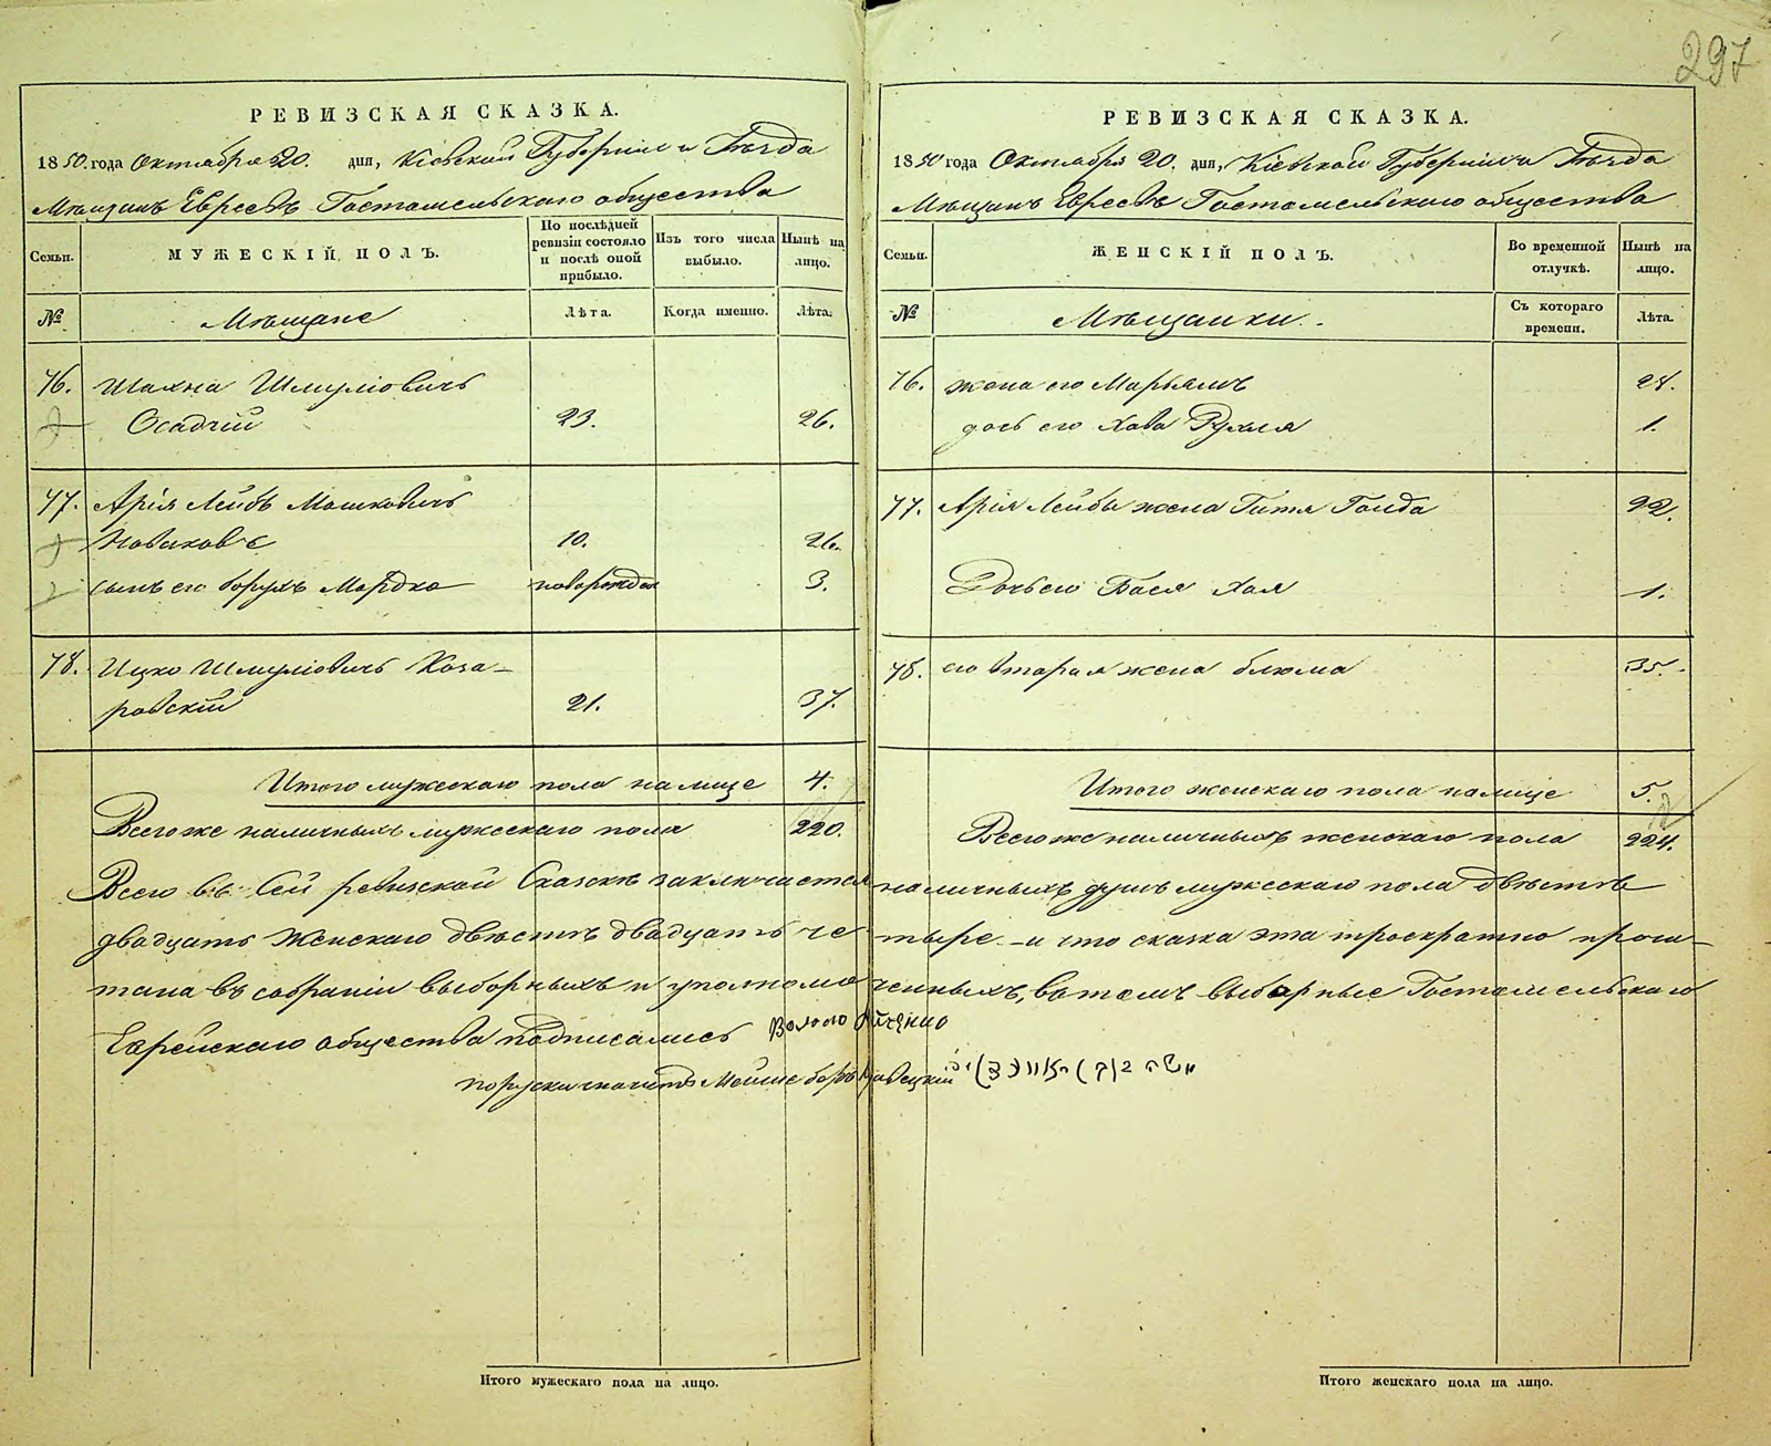 297
РЕВИЗСКАЯ СКАЗКА.
1850 года Октября 20. дня, Кіевской Губерніи и Уѣзда
Мѣщанъ Евреевъ Гостомельскаго общества
Семьи.
МУЖЕСКІЙ ПОЛЪ.
По послѣдней ревизіи состояло и послѣ оной прибыло.
Изъ того числа выбыло.
Нынѣ на лицо.
№
Мѣщане
Лѣта.
Когда именно.
Лѣта.
76. Шахна Шмуліовичъ
Осадчій 23. 26.
77. Арія Лейбъ Мошковичъ
Новаковъ 10. 26.
сынъ его Борухъ Мордко новорожден 3.
78. Ицко Шмуліовичъ Коза-
ровскій 21. 37.
Итого мужескаго пола на лице 4.
Всего же наличныхъ мужескаго пола 220.
РЕВИЗСКАЯ СКАЗКА.
1850 года Октября 20. дня, Кіевской Губерніи и Уѣзда
Мѣщанъ Евреевъ Гостомельскаго общества
Семьи.
ЖЕНСКІЙ ПОЛЪ.
Во временной отлучкѣ.
Нынѣ на лицо.
№
Мѣщанки.
Съ котораго времени.
Лѣта.
76. жена его Марьямъ 24.
дочь его Хава Рухля 1.
77. Арія Лейбы жена Гитя Голда 22.
Дочь его Бася Хая 1.
78. его вторая жена Блюма 35.
Итого женскаго пола на лице 5.
Всего же наличныхъ женскаго пола 224.
Всего въ Сей ревизской Сказкѣ заключается наличныхъ душъ мужескаго пола двѣстѣ
двадцать Женскаго двѣстѣ двадцать четыре - и что сказка эта троекратно прочи-
тана въ собраніи выборныхъ и уполномоченныхъ, въ томъ выборные Гостомельскаго
Еврейскаго общества подписались
по руски значитъ Мойше Беръ
Итого мужескаго пола на лицо.
Итого женскаго пола на лицо.